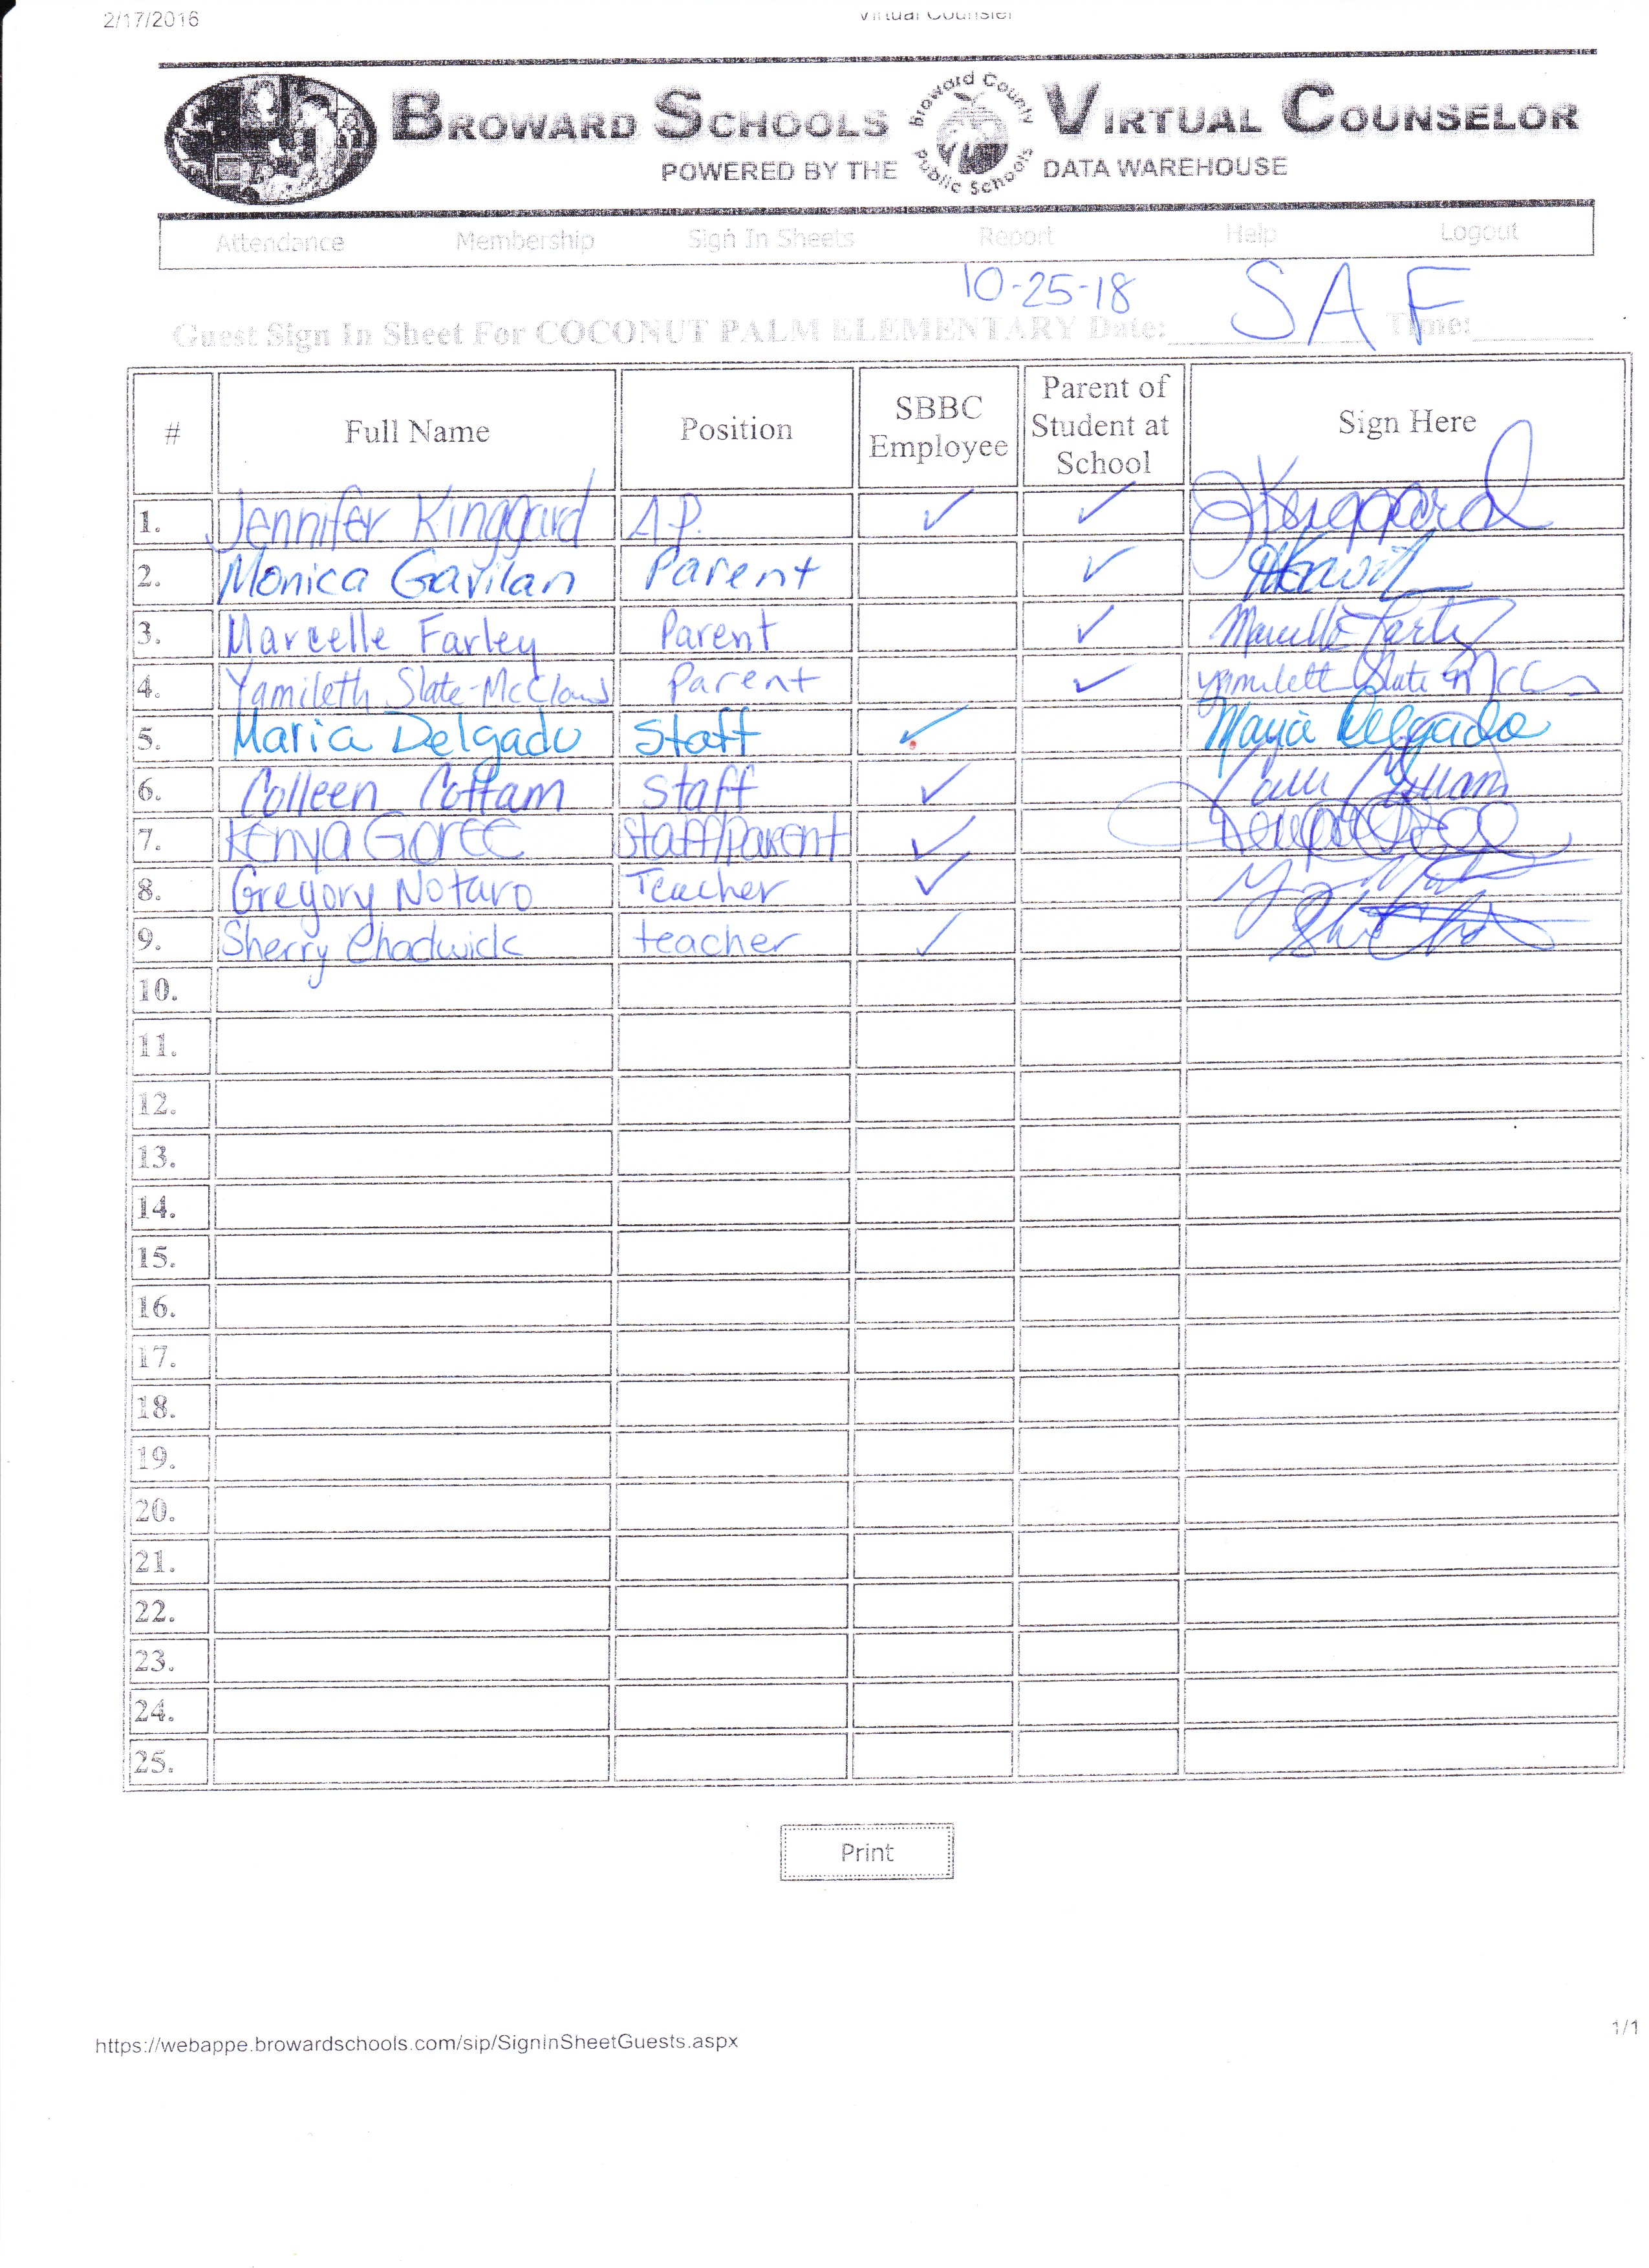 2/17/2016
Virtual Counsler
BROWARD SCHOOLS VIRTUAL COUNSELOR
Broward County Public Schools
POWERED BY THE DATA WAREHOUSE
Attendance Membership Sign In Sheets Report Help Logout
10-25-18 SAF
Guest Sign In Sheet For COCONUT PALM ELEMENTARY Date:____________ Time:________
# Full Name Position SBBC Employee Parent of Student at School Sign Here
1. Jennifer Kinggard A.P. ✓ ✓ JKinggard
2. Monica Gavilan Parent ✓
3. Marcelle Farley Parent ✓ Marcelle Farley
4. Yamileth Slate-McCloud Parent ✓ Yamileth Slate Mcc
5. Maria Delgado Staff ✓ Maria Delgado
6. Colleen Cottam Staff ✓
7. Kenya Goree Staff/Parent ✓
8. Gregory Notaro Teacher ✓
9. Sherry Chadwick teacher ✓
10.
11.
12.
13.
14.
15.
16.
17.
18.
19.
20.
21.
22.
23.
24.
25.
Print
https://webappe.browardschools.com/sip/SignInSheetGuests.aspx
1/1